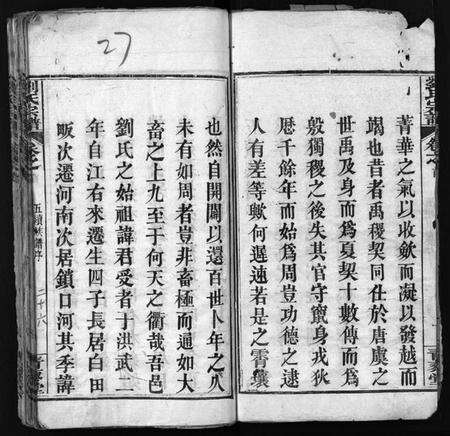 菁華之氣以收歛而凝以發越而
竭也昔者禹稷契同仕於唐虞之
世禹及身而爲夏契十數傳而爲
殷獨稷之後失其官守竄身戎狄
歷千餘年而始爲周豈功德之逮
人有差等歟何遲速若是之霄壤
27
也然自開闢以還百世卜年之久
未有如周者豈非畜極而通如大
畜之上九至于何天之衢哉吾邑
劉氏之始祖諱君受者于洪武二
年自江右來遷生四子長居白田
畈次遷河南次居鎖口河其季諱
劉氏宗譜
卷之
二十六